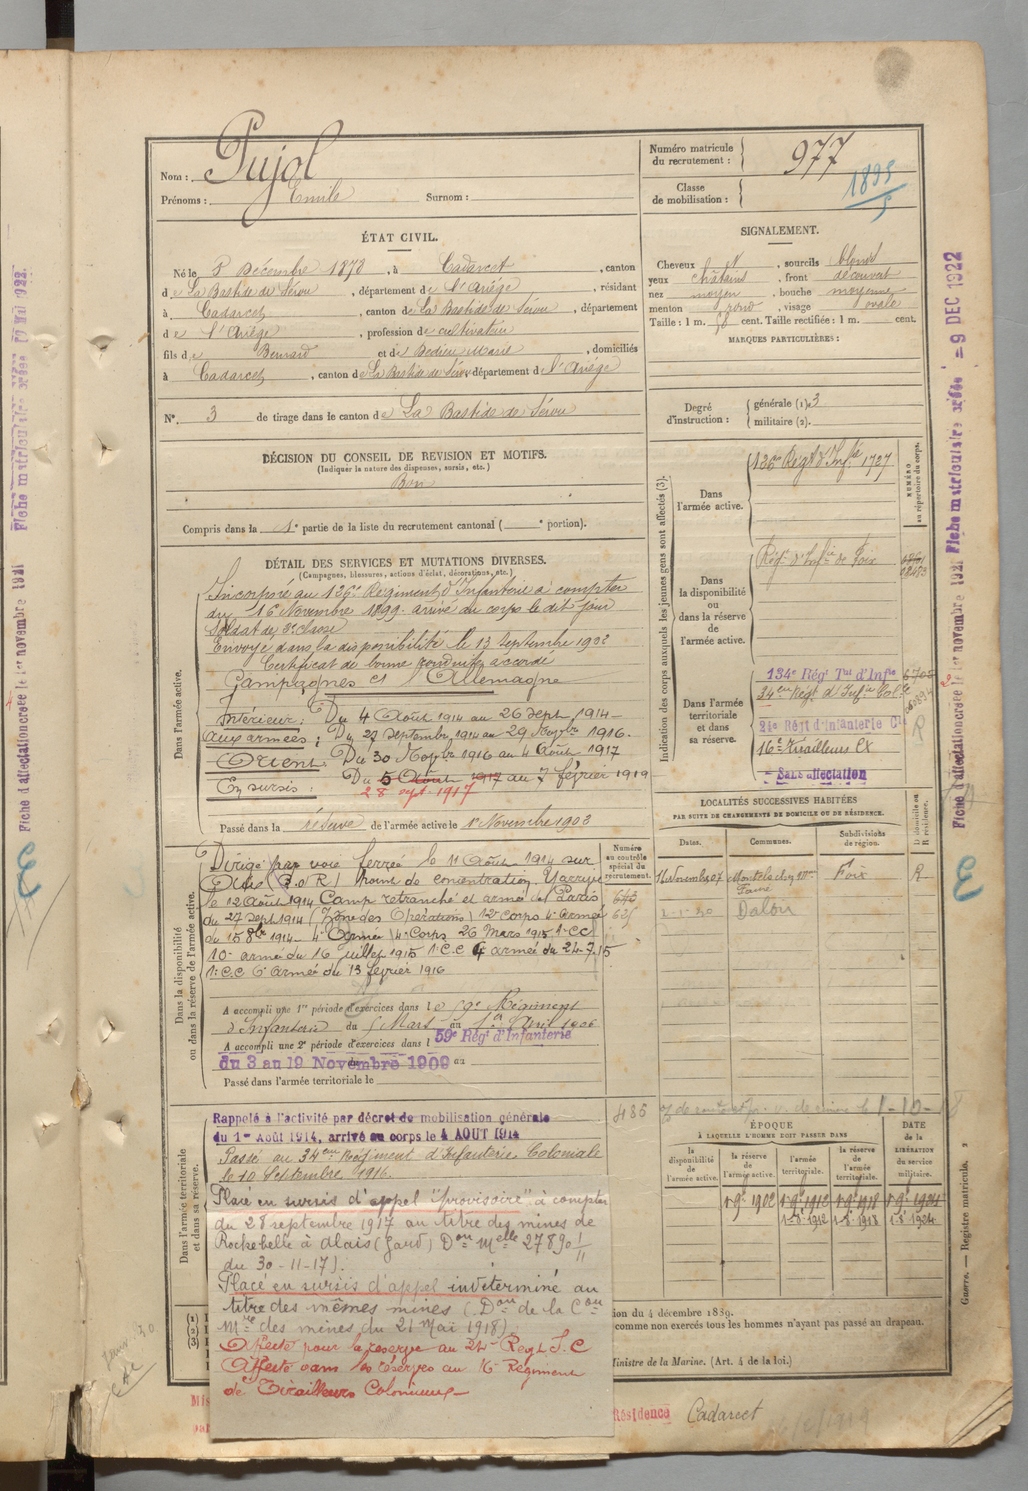 Nom : Pujol
Prénoms : Emile Surnom :
Numéro matricule du recrutement : 977
Classe de mobilisation : 1895
ÉTAT CIVIL.
Né le 3 Décembre 1878, à Cadarcet, canton
de La Bastide de Sérou, département de l'Ariège, résidant
à Cadarcet, canton de La Bastide de Sérou, département
de l'Ariège, profession de cultivateur
fils de Bernard et de Dedieu Marie, domiciliés
à Cadarcet, canton de La Bastide de Sérou département de l'Ariège
N°. 3 de tirage dans le canton de La Bastide de Sérou
DÉCISION DU CONSEIL DE REVISION ET MOTIFS.
(Indiquer la nature des dispenses, sursis, etc.)
Bon
Compris dans la 1e partie de la liste du recrutement cantonal ( e portion).
SIGNALEMENT.
Cheveux , sourcils blonds
yeux châtains, front découvert
nez moyen, bouche moyenne
menton rond, visage ovale
Taille : 1 m. 58 cent. Taille rectifiée : 1 m. cent.
MARQUES PARTICULIÈRES :
Degré d'instruction : générale (1). 3
militaire (2).
DÉTAIL DES SERVICES ET MUTATIONS DIVERSES.
(Campagnes, blessures, actions d'éclat, décorations, etc.)
Dans l'armée active.
Incorporé au 126e Régiment d'Infanterie à compter
du 16 Novembre 1899. arrivé au corps le dit jour
Soldat de 2e classe
Envoyé dans la disponibilité le 13 Septembre 1902
Certificat de bonne conduite accordé
Campagnes ct l'Allemagne
Intérieur : Du 4 Août 1914 au 26 Sept 1914
Aux armées : Du 27 Septembre 1914 au 29 Novbre 1916.
Orient. Du 30 Novbre 1916 au 4 Août 1917
En sursis : Du 5 Août 1917 au 7 février 1919
28 sept. 1917
Passé dans la réserve de l'armée active le 1er Novembre 1902
Indication des corps auxquels les jeunes gens sont affectés (3).
NUMÉRO au répertoire du corps.
Dans l'armée active.
126e Régt d'Infie 1727
Dans la disponibilité ou dans la réserve de l'armée active.
Régt d'Infie de Foix
Dans l'armée territoriale et dans sa réserve.
134e Régt Tal d'Infie
34eme Régt d'Infie Cole
24e Régt d'Infanterie Cle
R
16e Tirailleurs Cx
Sans affectation
LOCALITÉS SUCCESSIVES HABITÉES
PAR SUITE DE CHANGEMENTS DE DOMICILE OU DE RÉSIDENCE.
Dates. Communes. Subdivisions de région. D domicile ou R résidence.
Foix R
Dalou
Dans la disponibilité ou dans la réserve de l'armée active.
Numéro au contrôle spécial du recrutement.
Dirigé par voie ferrée le 11 Août 1914 sur
Point de concentration. Y arrive
le 12 Août 1914 Camp retranché et armée de Paris
du 27 Sept 1914 (Zone des Opérations) 12e Corps 4e Armée
du 15 8bre 1914 - 4e Armée 4e Corps 26 Mars 1915 1e CC
10e armée du 16 juillet 1915 1e C.C 4 armée du 24-7-15
1e C.C 6e Armée du 13 février 1916
A accompli une 1re période d'exercices dans le 59e Régiment
d'Infanterie du Mars au Avril 1906
A accompli une 2e période d'exercices dans l 59e Régt d'Infanterie
du 3 au 19 Novembre 1909 au
Passé dans l'armée territoriale le
Dans l'armée territoriale et dans sa réserve.
Rappelé à l'activité par décret de mobilisation générale
du 1er Août 1914, arrivé au corps le 4 AOUT 1914
Passé au 34eme Régiment d'Infanterie Coloniale
le 10 Septembre 1916.
Placé en sursis d'appel "provisoire" à compter
du 28 septembre 1917 au titre des mines de
Rochebelle à Alais (Gard) Don Melle 27890 1/11
du 30-11-17).
Placé en sursis d'appel indéterminé au
titre des mêmes mines (Don de la Con
Mre des mines du 21 Mai 1918)
Affecté pour la réserve au 24e Regt I.C
Affecté dans les réserves au 16e Régiment
de Tirailleurs Coloniaux
ÉPOQUE
À LAQUELLE L'HOMME DOIT PASSER DANS
la disponibilité de l'armée active.
la réserve de l'armée active.
l'armée territoriale.
la réserve de l'armée territoriale.
DATE de la LIBÉRATION du service militaire.
1er 9e 1902 1er 9e 1912 1er 9e 1918 1er 9e 1924
1-8e 1912 1-8e 1918 1-8e 1924
(1)
(2)
(3)
ion du 4 décembre 1889.
comme non exercés tous les hommes n'ayant pas passé au drapeau.
Ministre de la Marine. (Art. 4 de la loi.)
Guerre. — Registre matricule. 2
Résidence Cadarcet
Fiche d'affectation créée le 1er novembre 1921 Fiche matriculaire créée - 9 DEC 1922
Fiche d'affectation créée le 1er novembre 1921